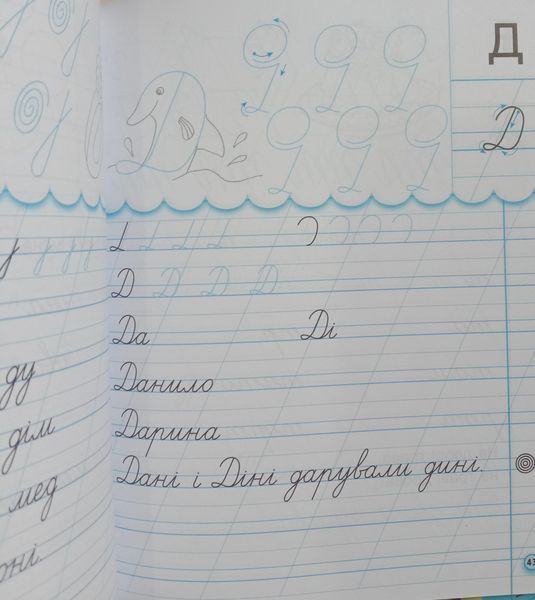 Д
Д
Д Д Д Д
Да Ді
Данило
Дарина
Дані і Діні дарували дині.
ду
дім
мед
43